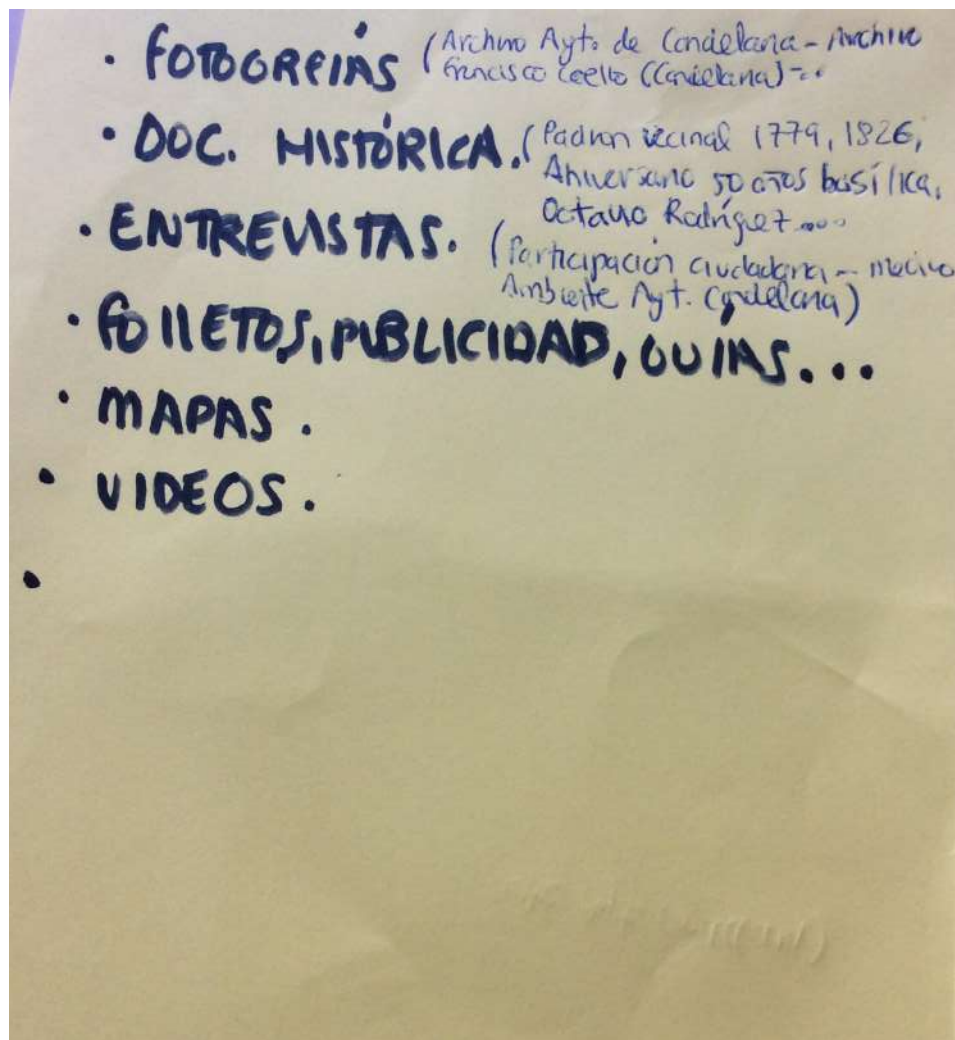 · FOTOGRAFÍAS (Archivo Ayto de Candelaria - Archivo
Francisco Coello (Candelaria)...
· DOC. HISTÓRICA. (Padron vecinal 1779, 1826,
Aniversario 50 años basílica,
Octavio Rodríguez....
· ENTREVISTAS. (Participación ciudadana - medio
Ambiente Ayt. Candelaria)
· FOllETOS, PUBLICIDAD, GUIAS...
· MAPAS.
· VIDEOS.
·